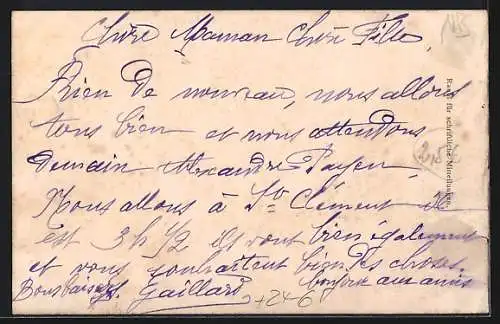 Chère Maman Chère Fille,
Rien de nouveau, nous allons
tous bien et nous attendons
demain Alexandre Payen,
Nous allons à St Clément il
est 3 h 1/2 ils vont bien également
et vous souhaitent bien des choses.
Bons baisers. Gaillard bonjour aux amis
+246
Raum für schriftliche Mitteilungen.
NB